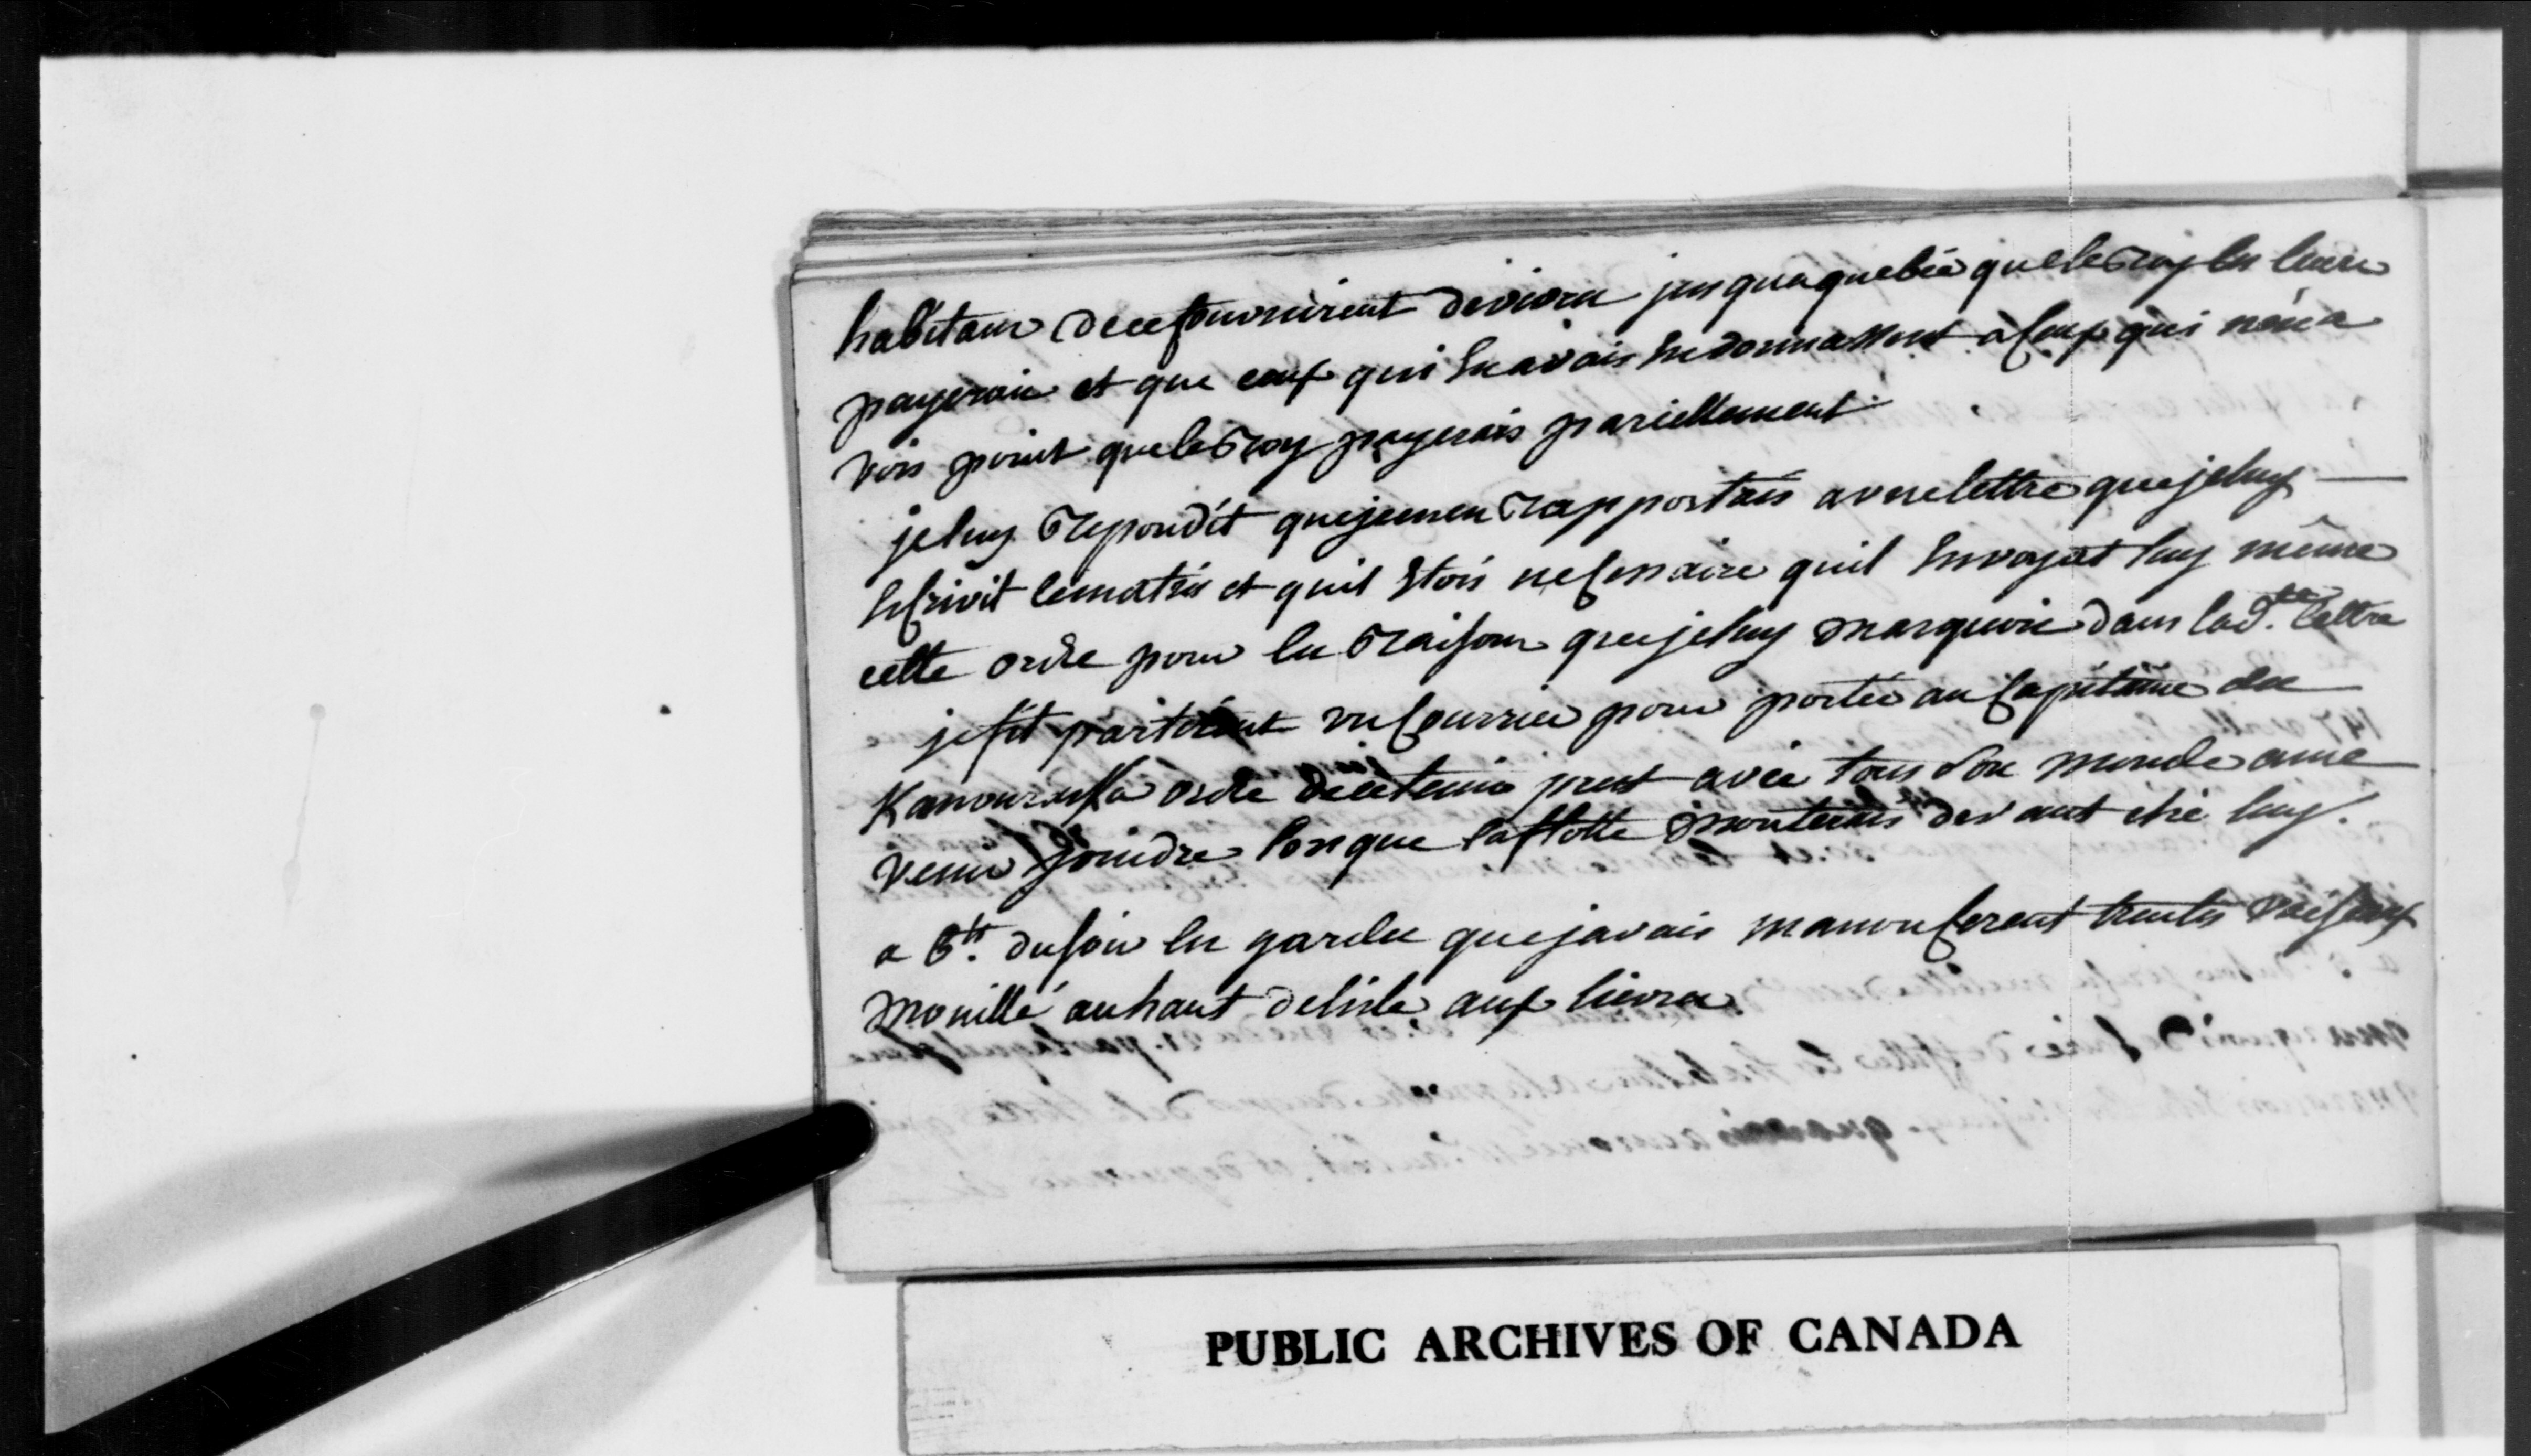 habitans de ce fournirent de vivres jusqua quebec que le Roy les leurs
payerois et que ceux qui en avois en donnassent à ceux qui n'en a
vois point que le Roy payerois pariellement
je luy Repondit que je men Rapportais a une lettre que je luy
Ecrivit le matin et quil Etois necessaire quil Envoyat luy même
cette ordre pour les Raisons que je luy marquois dans lad.te lettre
je fit partir un Courrier pour porter au Capitaine de
Kamouraska ordre de ce tenir prest avec tous son monde a me
venir joindre lorsque la flotte monterais devant chés luy.
a 6.h du soir les gardes que javais manoncerent trentes vaisseaux
mouillé au haut de lisle aux lievres
PUBLIC ARCHIVES OF CANADA